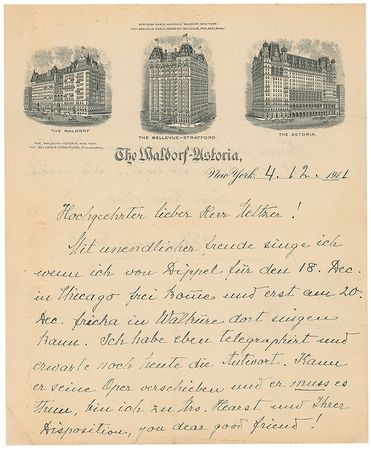 NEW YORK CABLE ADDRESS "WALDORF, NEW YORK"
PHILADELPHIA CABLE ADDRESS "BELLEVUE, PHILADELPHIA"
THE WALDORF.
THE BELLEVUE-STRATFORD.
THE ASTORIA.
THE WALDORF-ASTORIA, NEW YORK.
THE BELLEVUE-STRATFORD, PHILADELPHIA.
The Waldorf-Astoria,
New York, 4. 12. 1911
Hochgeehrter lieber Herr !
Mit unendlicher freude singe ich
wenn ich von Dippel für den 18. Dec.
in Chicago frei kome und erst am 20.
Dec. fricka in Walküre dort singen
kann. Ich habe eben telegraphirt und
erwarte noch heute die Antwort. Kann
er seine Oper verschieben und er muss es
thun, bin ich zu Mrs. Hearst und Ihrer
Disposition, you dear good friend !